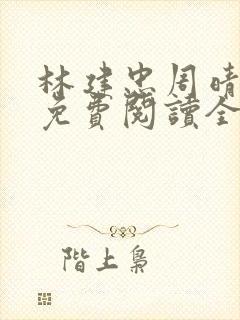 林建忠周晴
免費閱讀全
階上梟